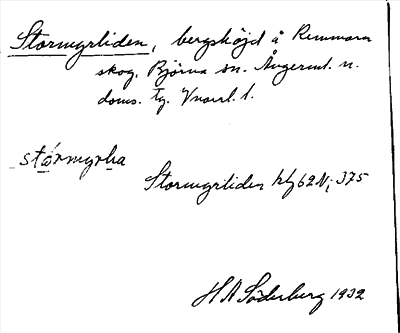 Stormyrliden, bergshöjd å Remmarn
skog, Björna sn. Ångerml. n.
doms. tg.
stórmyrlıa
Stormyrliden kbl 62 N; 375
H A Söderberg 1932